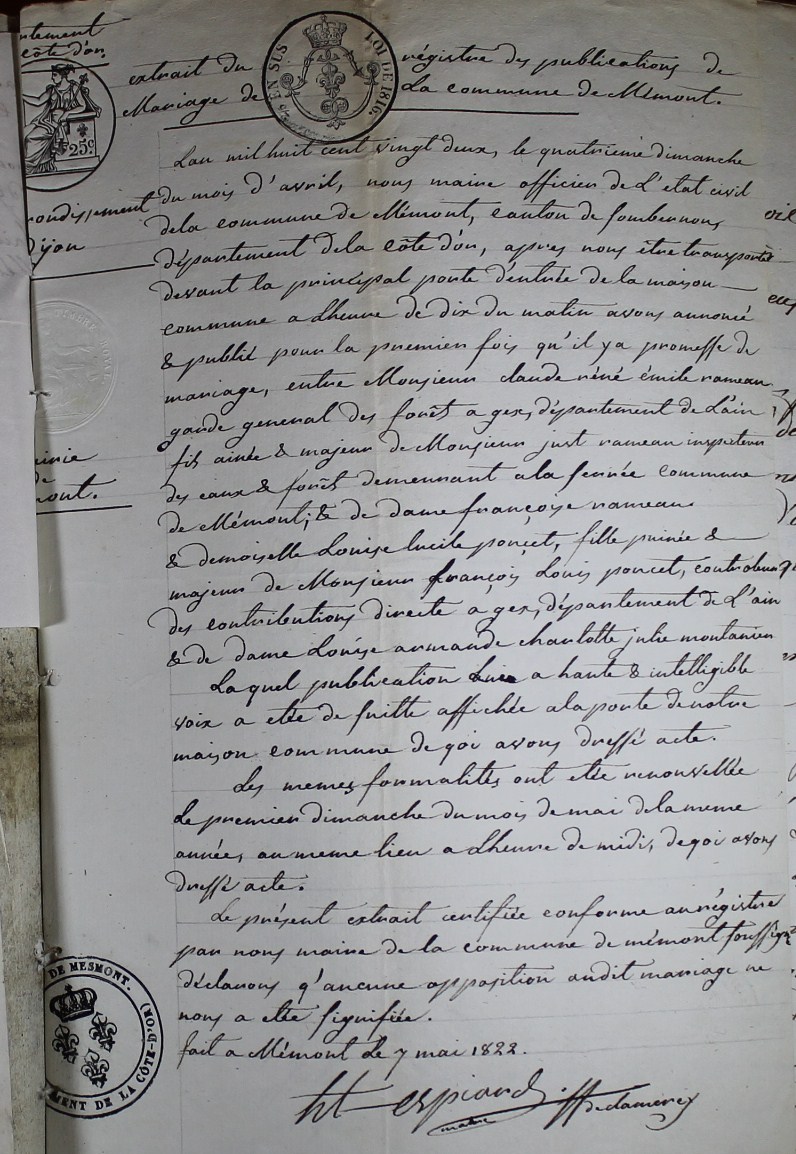 rtement
côte d'or.
25c
EN SUS
LOI DE 1816.
extrait du régistre des publications de
Mariage de La commune de Mémont.
rondissement
Dijon
TIMBRE ROYAL
airie
de
mont.
Lan mil huit cent vingt deux, le quatrieme dimanche
du mois d'avril, nous maire officier de L'etat civil
dela commune de Mémont, canton de sombernon,
département dela Côte d'or, apres nous être transportés
devant la principal porte d'entrée de la maison
commune a Lheure de dix du matin avons annoncé
& publié pour la premier fois qu'il ya promesse de
mariage, entre Monsieur claude réné émile rameau
garde general des forêt a gex, département de L'ain,
fils ainée & majeur de Monsieur just rameau inspecteur
des eaux & forêt demeurant ala serrée commune
de Mémont; & de dame françoise rameau
& demoiselle Louise lucile poncet, fille puinée &
majeur de Monsieur françois Louis poncet, controleur
des contributions directe a gex, département de L'ain
& de dame Louise armande charlotte julie montanier
Laquel publication luie a haute & intelligible
voix a etée de suitte affichée ala porte de notre
maison commune de qoi avons dressé acte.
Les memes formalités ont etée renouvellée
Le premier dimanche du mois de mai dela meme
année, au meme lieu a Lheure de midi, de qoi avons
dressé acte.
Le présent extrait certifiée conforme au régistre
par nous maire de la commune de mémont soussigné
déclarons q'aucune opposition audit mariage ne
nous a etée signifiée.
fait a Mémont Le 7 mai 1822.
espiard
maire
de clamerey
DE MESMONT.
MENT DE LA CÔTE-D'OR)